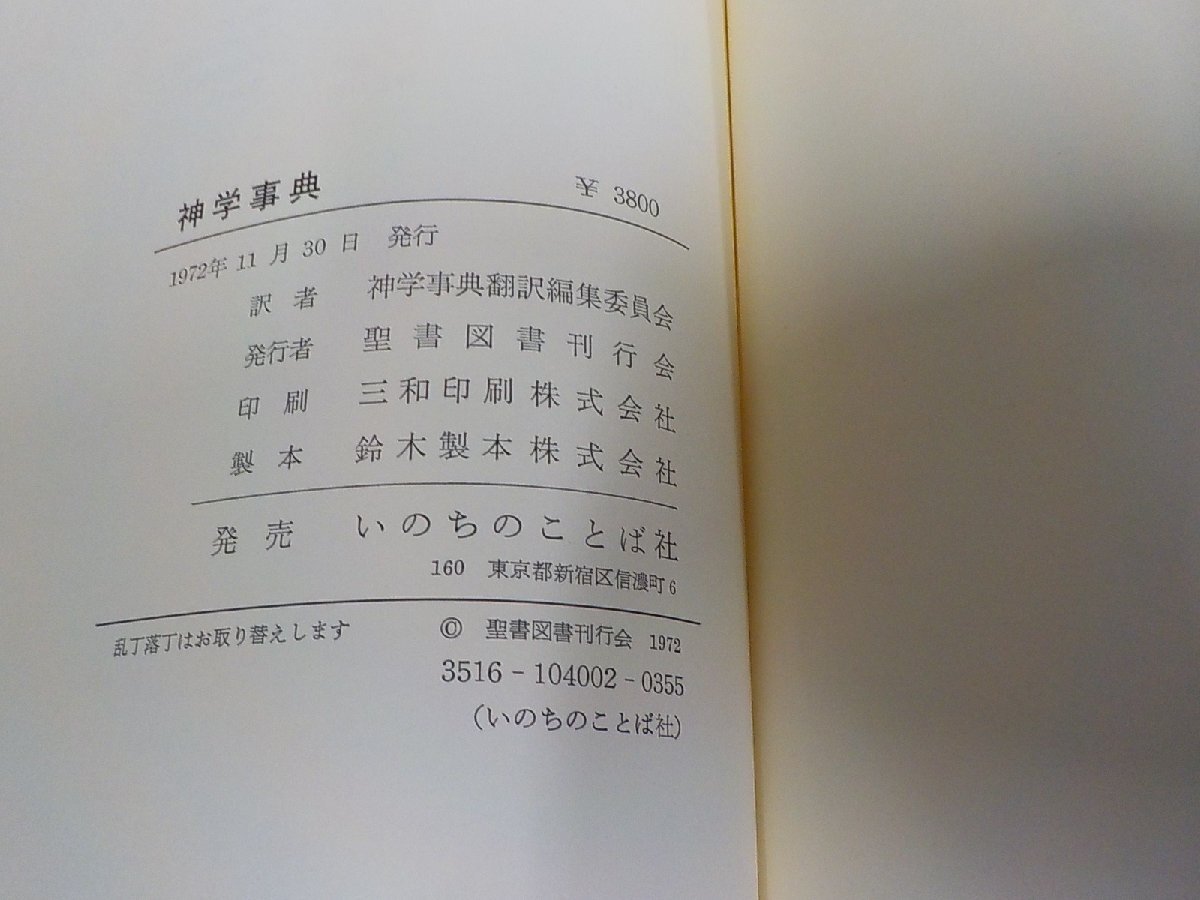 神学事典 ¥ 3800
1972年 11 月 30 日 発行
訳者 神学事典翻訳編集委員会
発行者 聖書図書刊行会
印刷 三和印刷株式会社
製本 鈴木製本株式会社
発売 いのちのことば社
160 東京都新宿区信濃町 6
乱丁落丁はお取り替えします © 聖書図書刊行会 1972
3516-104002-0355
(いのちのことば社)